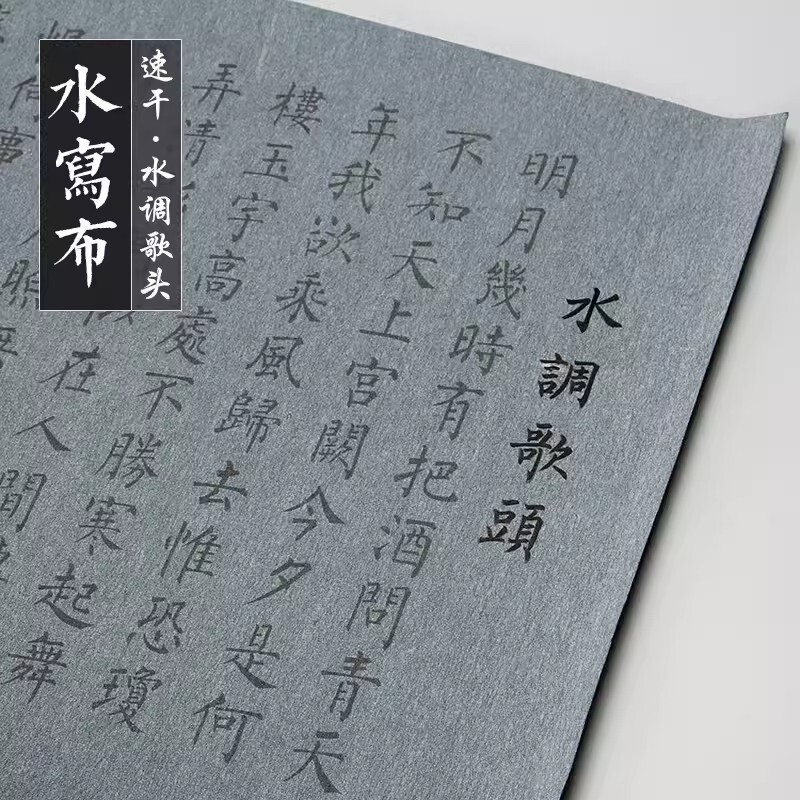 水寫布
速干·水调歌头
水調歌頭
明月幾時有把酒問青天
不知天上宮闕今夕是何
年我欲乘風歸去惟恐瓊
樓玉宇高處不勝寒起舞
弄清在人間